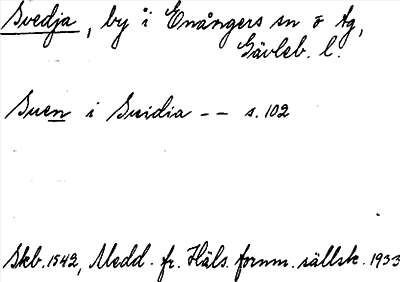 Svedja, by i Enångers sn o tg,
Gävleb. l.
Suen i Suidia -- s. 102
Skb. 1542, Medd. fr. Häls. fornm. sällsk. 1933